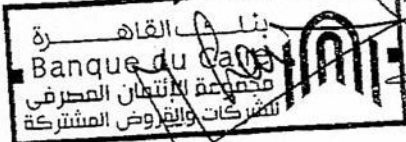 بنك القاهرة
Banque du Caire
مجموعة الائتمان المصرفى
للشركات والقروض المشتركة